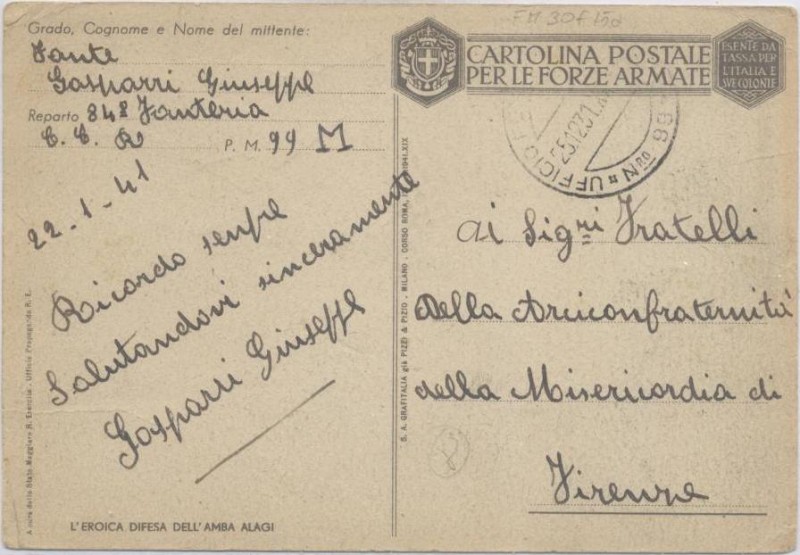 Grado, Cognome e Nome del mittente:
Fante
Gasparri Giuseppe
Reparto 84º Fanteria
C. C. R P. M. 99 M
22-1-41
Ricordo senpre
Salutandovi sinceramente
Gasparri Giuseppe
L'EROICA DIFESA DELL'AMBA ALAGI
A cura dello Stato Maggiore R. Esercito - Ufficio Propaganda R. E.
S. A. GRAFITALIA già PIZZI & PIZIO - MILANO - CORSO ROMA, 1941-XIX
CARTOLINA POSTALE
PER LE FORZE ARMATE
ESENTE DA
TASSA PER
L'ITALIA E
SVE COLONIE
UFFICIO
Nro 99
Ai Sigri Fratelli
della Arciconfraternità
della Misericordia di
Firenze